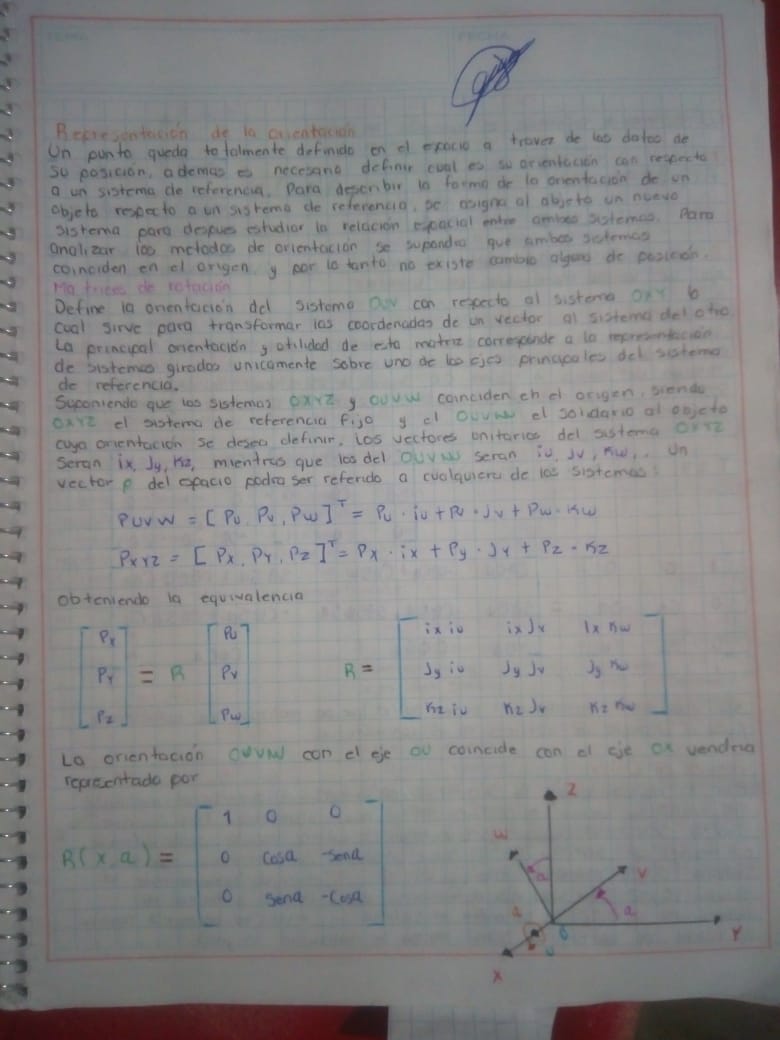 TEMA
FECHA
Representación de la orientación
Un punto queda totalmente definido en el espacio a travez de los datos de
su posición, ademas es necesario definir cual es su orientación con respecto
a un sistema de referencia. Para describir la forma de la orientación de un
objeto respecto a un sistema de referencia, se asigna al objeto un nuevo
sistema para despues estudiar la relación espacial entre ambos sistemas. Para
analizar los metodos de orientación se supondra que ambos sistemas
coinciden en el origen, y por lo tanto no existe cambio alguno de posición.
Matrices de rotación
Define la orientación del sistema OUV con respecto al sistema OXY lo
cual sirve para transformar las coordenadas de un vector al sistema del otro.
La principal orientación y utilidad de esta matriz corresponde a la representación
de sistemas girados unicamente sobre uno de los ejes principales del sistema
de referencia.
Suponiendo que los sistemas OXYZ y OUVW coinciden en el origen, siendo
OXYZ el sistema de referencia fijo y el OUVW el solidario al objeto
cuya orientación se desea definir. Los vectores unitarios del sistema OXYZ
seran ix, Jy, Kz, mientras que los del OUVW seran iu, Jv, Kw,. Un
vector p del espacio podra ser referido a cualquiera de los sistemas:
PUVW = [ PU, PV, PW ]ᵀ = PU · iu + PV · Jv + PW · Kw
PXYZ = [ PX, PY, PZ ]ᵀ = PX · ix + Py · Jy + PZ · Kz
obteniendo la equivalencia
PX PU ix iu ix Jv Ix Kw
PY = R PV R = Jy iu Jy Jv Jy Kw
PZ PW Kz iu Kz Jv Kz Kw
La orientación OUVW con el eje OU coincide con el eje OX vendria
representada por
1 0 0
R(x, a) = 0 Cosa -Sena
0 Sena -Cosa
Z
W
a
V
a
a
O
Y
U
X